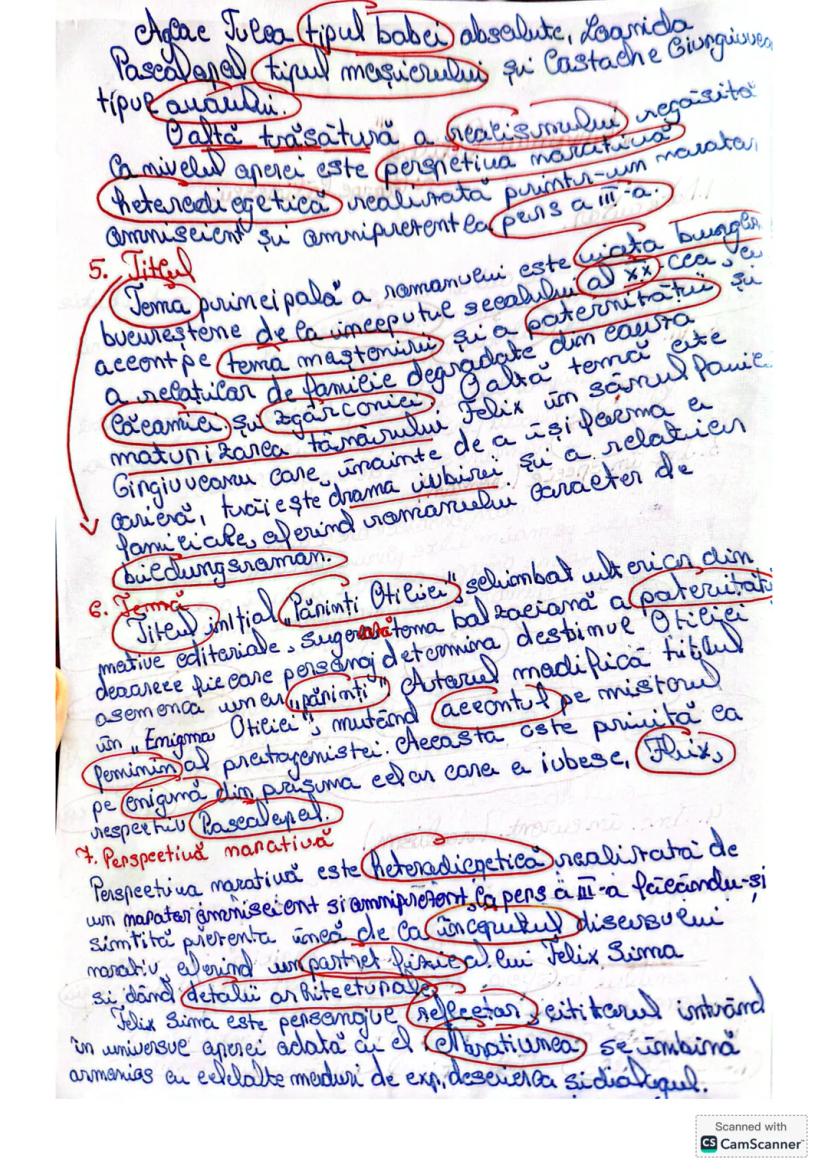 Aglae Tulea tipul babei absolute, Leonida
Pascalopol tipul moșierului și Costache Giurgiuvea
tipul avarului.
O altă trăsătură a realismului regăsită
la nivelul operei este perspetiva narativă
heterediegetică realizată printr-un narator
omniscient și omniprezent la pers a III-a.
5. Titlul
Tema principală a romanului este viața burghe
bucureștene de la începutul secolului al XX-cea, cu
accent pe tema moștenirii și a paternității și
a relațiilor de familie degradate din cauza
lăcomiei și zgârconiei O altă temă este
maturizarea tânărului Felix în sânul famili
Giugiuveanu care, înainte de a își forma o
carieră, trăiește drama iubirei și a relațiilor
familiale, oferind romanului caracter de
bildungsroman.
6. Temă
Titlul inițial „Părinți Otiliei", schimbat ulterior din
motive editoriale, sugerează tema balzaciană a paternități
deoarece fiecare personaj determina destinul Otiliei
asemenea unor „părinți" Autorul modifică titlul
în „Enigma Otiliei", mutând accentul pe misterul
feminin al protagonistei. Aceasta este privită ca
pe enigmă din prisma celor care o iubesc, Felix,
respectiv Pascalopol.
7. Perspectivă narativă
Perspectiva narativă este heterodiegetică realizată de
un narator omniscient si omniprezent, la pers a III-a făcându-și
simtită prezenta încă de la începutul discursului
narativ, oferind un portret fizic al lui Felix Sima
si dând detalii arhitecturale.
Felix Sima este personajul reflector, cititorul intrând
în universul operei odată cu el. Narațiunea se îmbină
armonios cu celelalte moduri de exp, descrierea si dialogul.
Scanned with
CS CamScanner